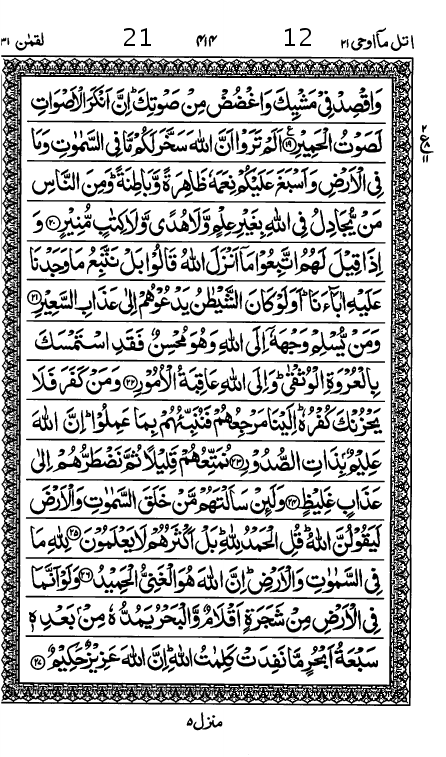 اتل مآاوحی ۲۱ 12 ۴۱۴ 21 لقمٰن ۳۱
وَاقْصِدْ فِیْ مَشْیِكَ وَاغْضُضْ مِنْ صَوْتِكَ ؕ اِنَّ اَنْكَرَ الْاَصْوَاتِ
لَصَوْتُ الْحَمِیْرِ ﴿۱۹﴾ اَلَمْ تَرَوْا اَنَّ اللّٰهَ سَخَّرَ لَكُمْ مَّا فِی السَّمٰوٰتِ وَمَا
فِی الْاَرْضِ وَاَسْبَغَ عَلَیْكُمْ نِعَمَهٗ ظَاهِرَةً وَّبَاطِنَةً ؕ وَمِنَ النَّاسِ
مَنْ یُّجَادِلُ فِی اللّٰهِ بِغَیْرِ عِلْمٍ وَّلَا هُدًی وَّلَا كِتٰبٍ مُّنِیْرٍ ﴿۲۰﴾ وَ
اِذَا قِیْلَ لَهُمُ اتَّبِعُوْا مَاۤ اَنْزَلَ اللّٰهُ قَالُوْا بَلْ نَتَّبِعُ مَا وَجَدْنَا
عَلَیْهِ اٰبَآءَنَا ؕ اَوَلَوْ كَانَ الشَّیْطٰنُ یَدْعُوْهُمْ اِلٰی عَذَابِ السَّعِیْرِ ﴿۲۱﴾
وَمَنْ یُّسْلِمْ وَجْهَهٗۤ اِلَی اللّٰهِ وَهُوَ مُحْسِنٌ فَقَدِ اسْتَمْسَكَ
بِالْعُرْوَةِ الْوُثْقٰی ؕ وَاِلَی اللّٰهِ عَاقِبَةُ الْاُمُوْرِ ﴿۲۲﴾ وَمَنْ كَفَرَ فَلَا
یَحْزُنْكَ كُفْرُهٗ ؕ اِلَیْنَا مَرْجِعُهُمْ فَنُنَبِّئُهُمْ بِمَا عَمِلُوْا ؕ اِنَّ اللّٰهَ
عَلِیْمٌۢ بِذَاتِ الصُّدُوْرِ ﴿۲۳﴾ نُمَتِّعُهُمْ قَلِیْلًا ثُمَّ نَضْطَرُّهُمْ اِلٰی
عَذَابٍ غَلِیْظٍ ﴿۲۴﴾ وَلَئِنْ سَاَلْتَهُمْ مَّنْ خَلَقَ السَّمٰوٰتِ وَالْاَرْضَ
لَیَقُوْلُنَّ اللّٰهُ ؕ قُلِ الْحَمْدُ لِلّٰهِ ؕ بَلْ اَكْثَرُهُمْ لَا یَعْلَمُوْنَ ﴿۲۵﴾ لِلّٰهِ مَا
فِی السَّمٰوٰتِ وَالْاَرْضِ ؕ اِنَّ اللّٰهَ هُوَ الْغَنِیُّ الْحَمِیْدُ ﴿۲۶﴾ وَلَوْ اَنَّمَا
فِی الْاَرْضِ مِنْ شَجَرَةٍ اَقْلَامٌ وَّالْبَحْرُ یَمُدُّهٗ مِنْۢ بَعْدِهٖ
سَبْعَةُ اَبْحُرٍ مَّا نَفِدَتْ كَلِمٰتُ اللّٰهِ ؕ اِنَّ اللّٰهَ عَزِیْزٌ حَكِیْمٌ ﴿۲۷﴾
منزل ۵